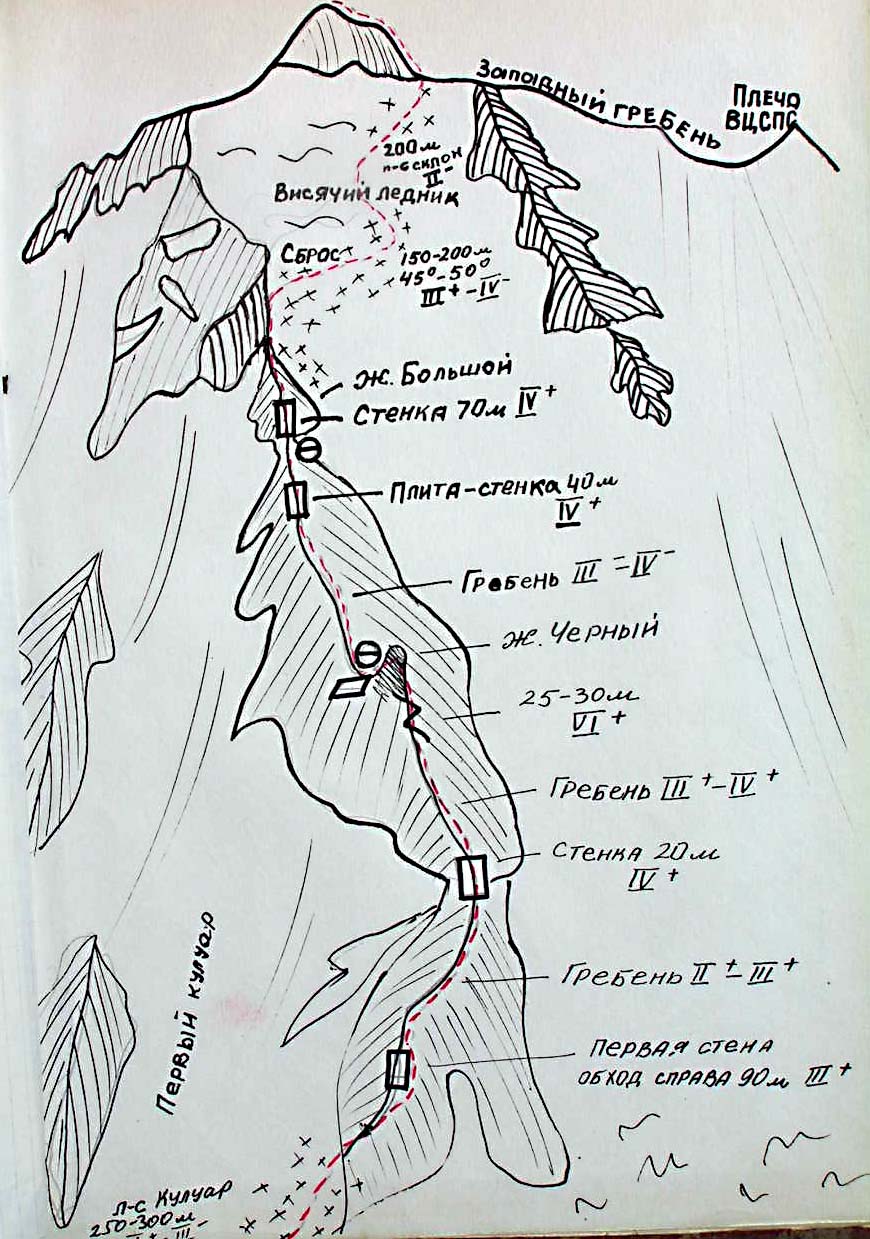 Западный гребень
Плечо
ВЦСПС
200м
л-с склон
II-
Висячий ледник
Сброс
150-200м
45°-50°
III+-IV-
Ж. Большой
Стенка 70м IV+
Плита-стенка 40м
IV+
Гребень III=IV-
Ж. Черный
25-30м
VI+
Гребень III+-IV+
Стенка 20м
IV+
Гребень II+-III+
Первая стена
обход справа 90м III+
Первый кулуар
Л-С Кулуар
250-300м